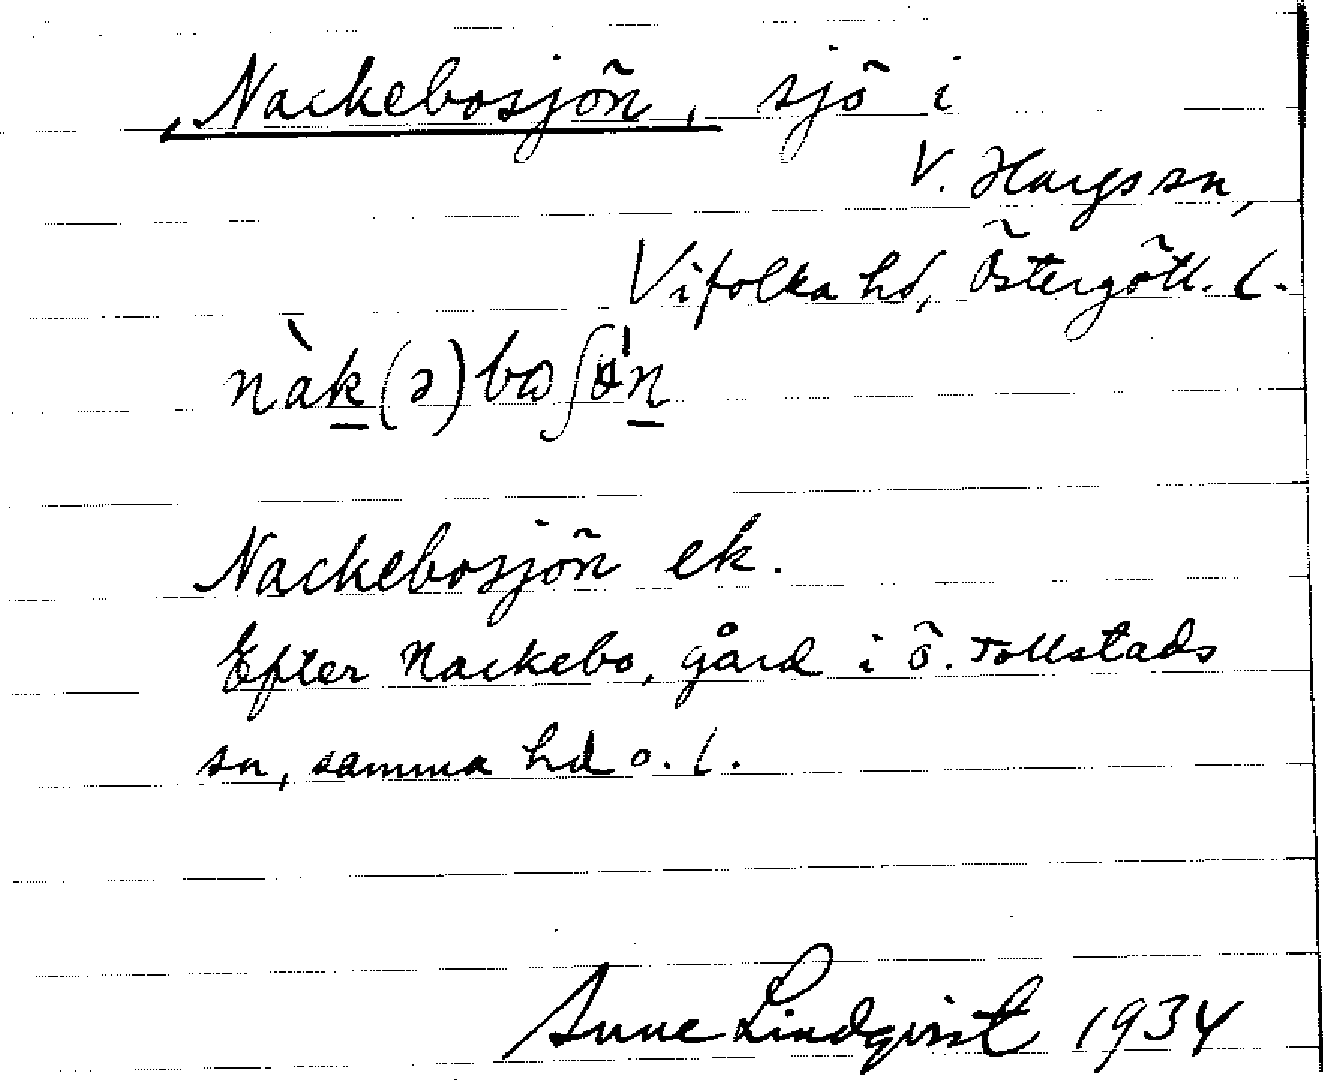 Nackebosjön, sjö i
V. Hargs sn,
Vifolka hd, Östergötl. l.
nàk(ə)boʃø'n
Nackebosjön ek.
Efter Nackebo, gård i Ö. Tollstads
sn, samma hd o. l.
Sune Lindqvist 1934